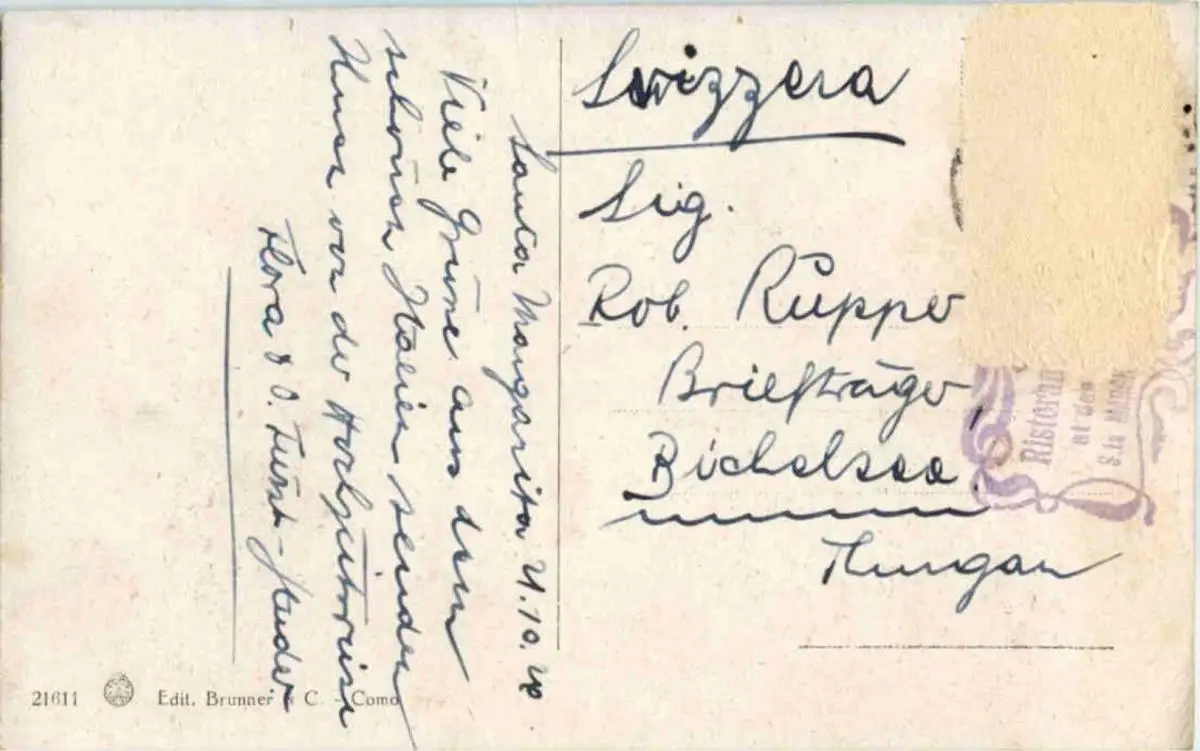 Santa Margarita 21.10.
Viele Grüsse aus dem
schönen Italien senden
Ihnen von der Hochzeitsreise
Flora & O. Fürst-Studer
Svizzera
Sig.
Rob. Rupper
Briefträger,
Bichelsee.
Thurgau
Ristoran
at den
S.ta Marg
21611 Edit. Brunner & C. - Como